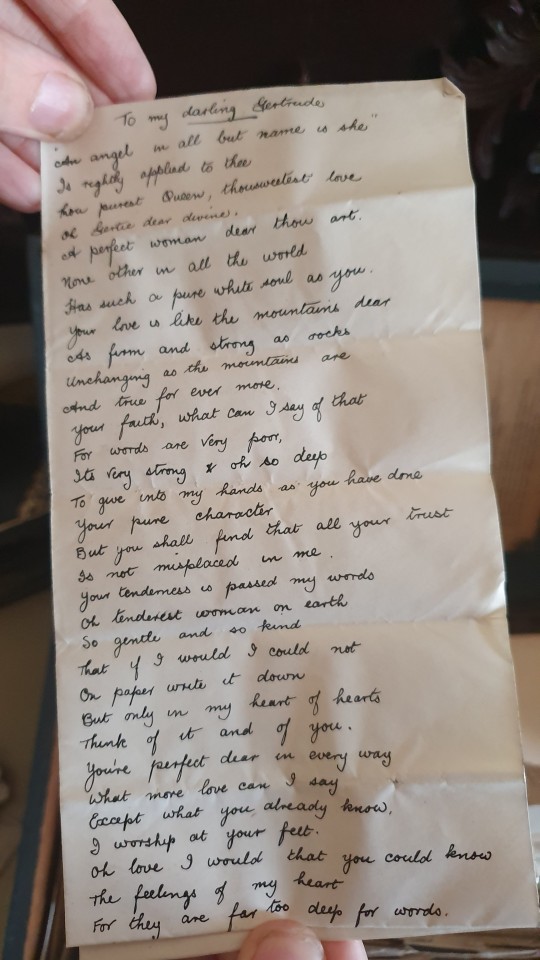 To my darling Gertrude
"An angel in all but name is she"
Is rightly applied to thee
Thou purest Queen, thou sweetest love
Oh Gertie dear divine.
A perfect woman dear thou art.
None other in all the world
Has such a pure white soul as you.
Your love is like the mountains dear
As firm and strong as rocks
Unchanging as the mountains are
And true for ever more.
Your faith, what can I say of that
For words are very poor,
Its very strong & oh so deep
To give into my hands as you have done
Your pure character
But you shall find that all your trust
Is not misplaced in me.
Your tenderness is passed my words
Oh tenderest woman on earth
So gentle and so kind
That if I would I could not
On paper write it down
But only in my heart of hearts
Think of it and of you.
You're perfect dear in every way
What more love can I say
Except what you already know,
I worship at your feet.
Oh love I would that you could know
The feelings of my heart
For they are far too deep for words.